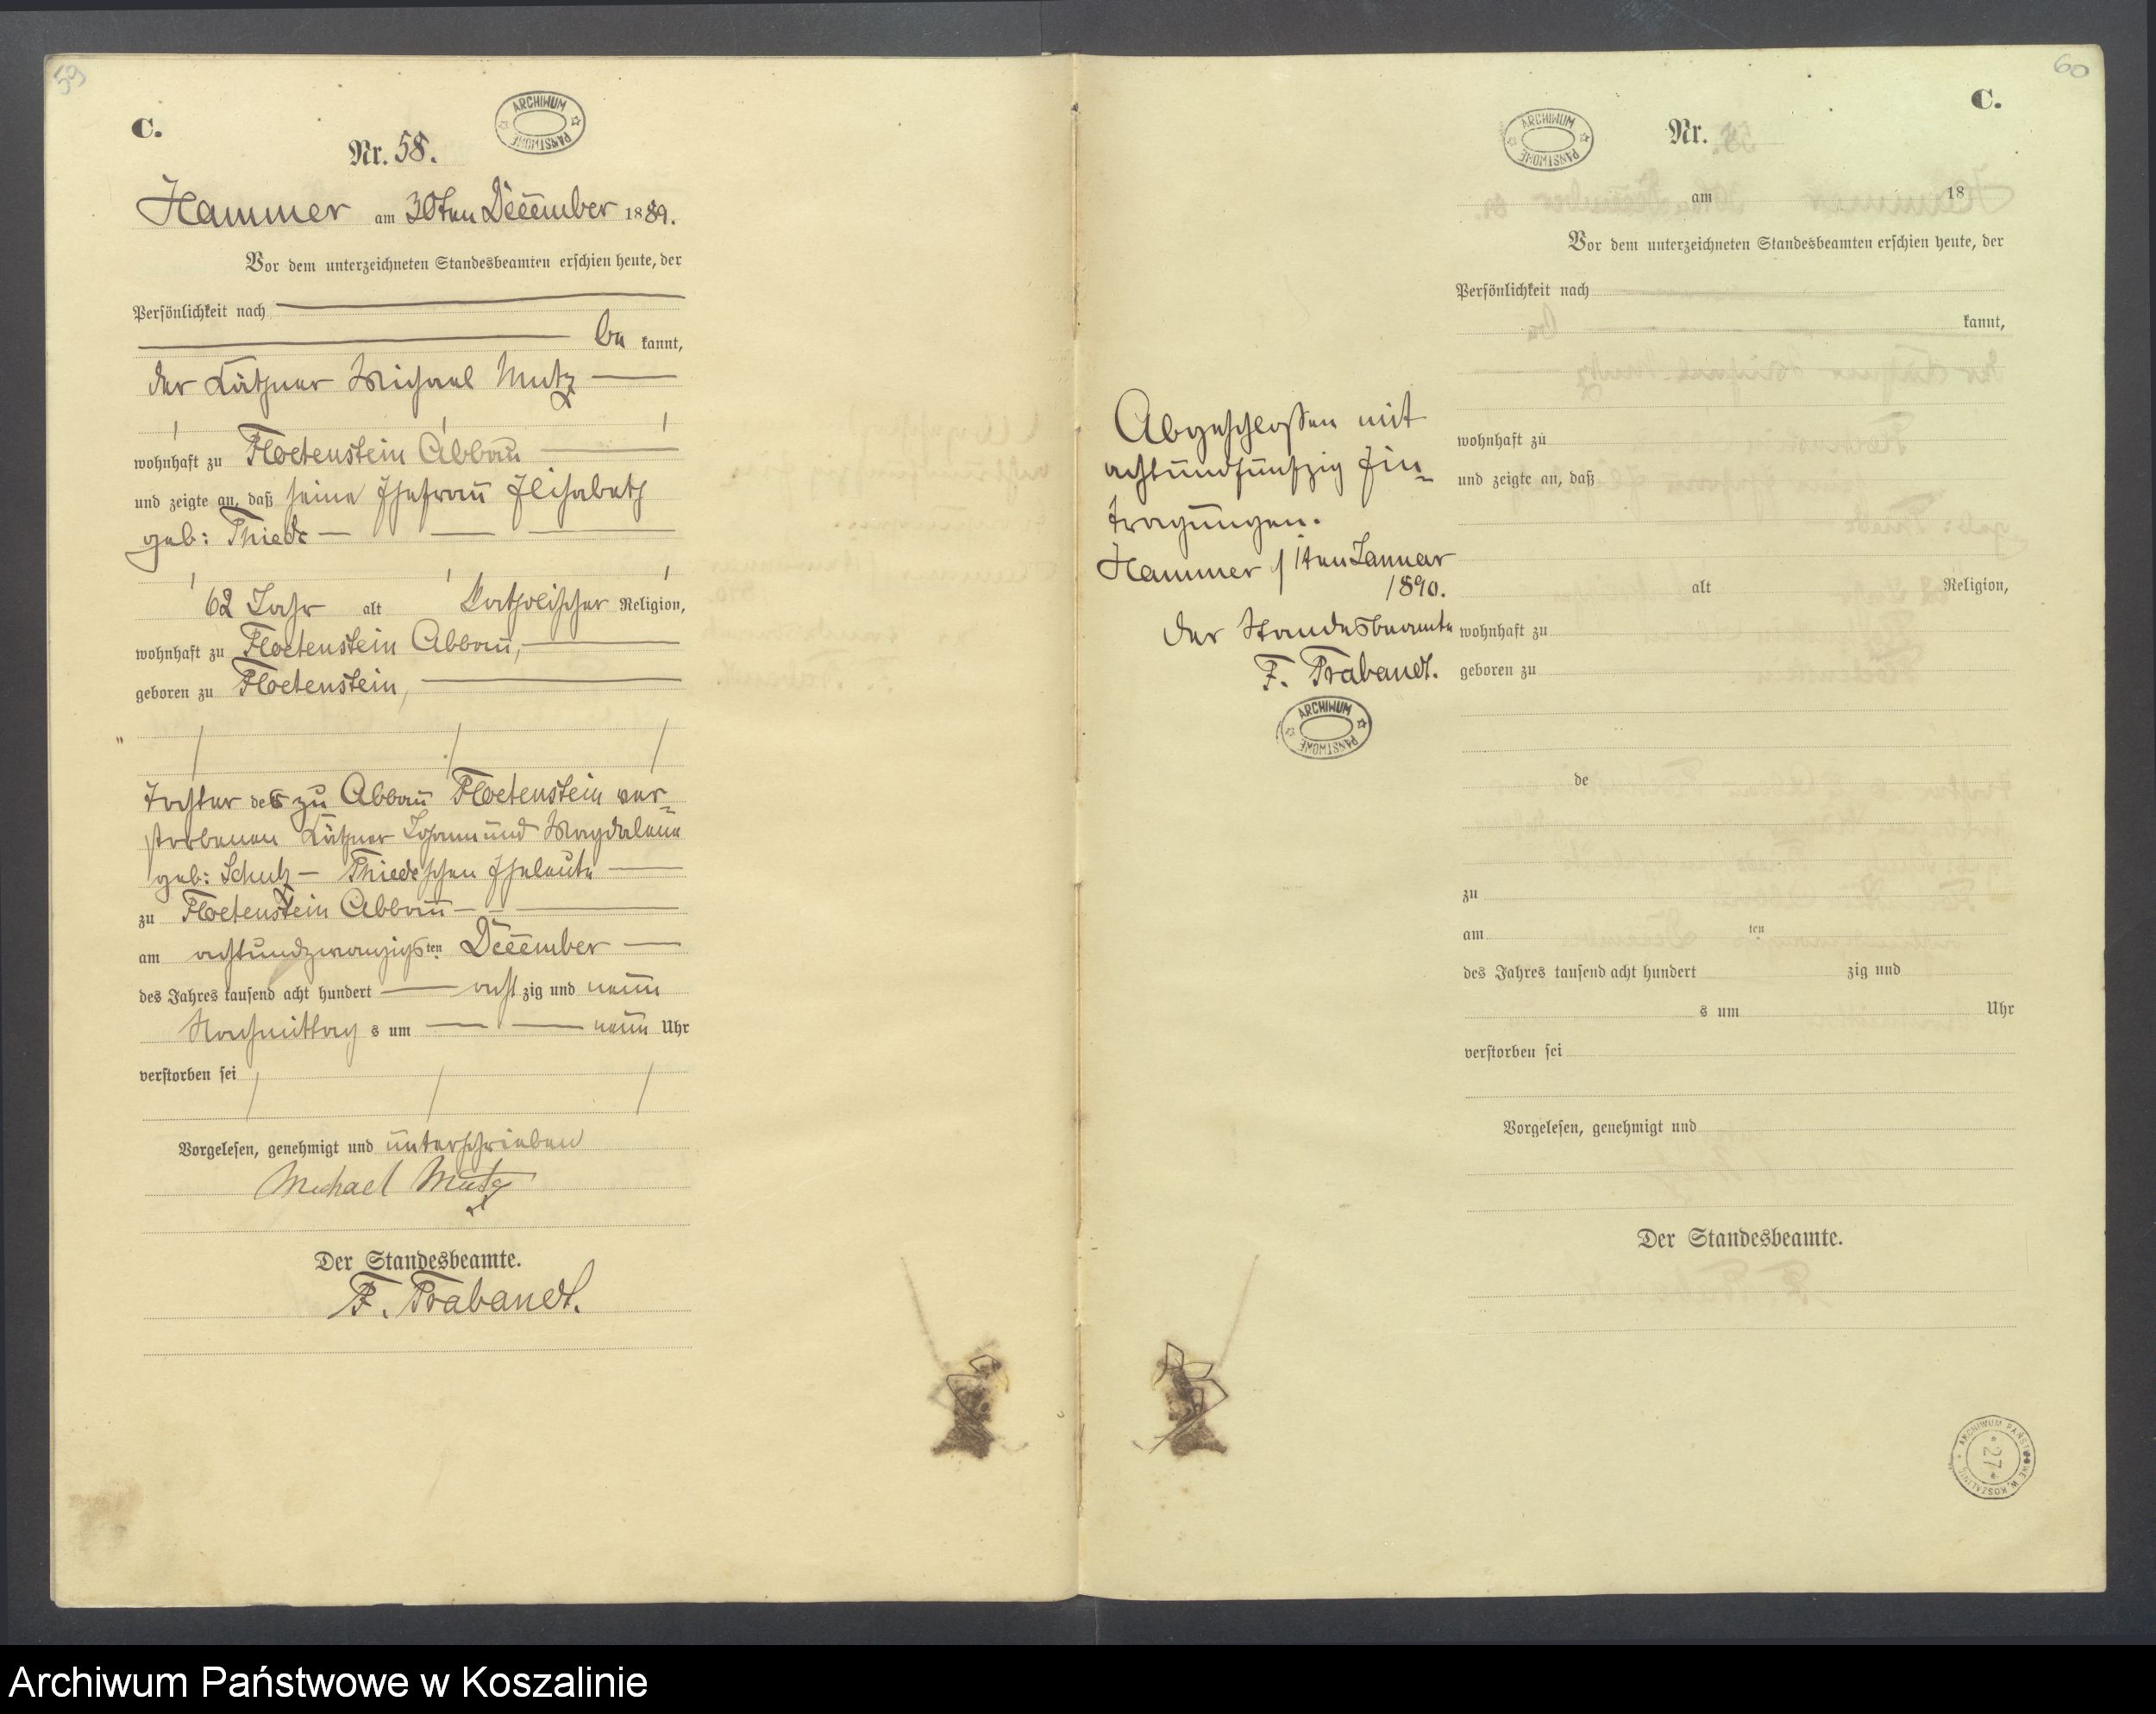 59
C.
ARCHIWUM PAŃSTWOWE
Nr. 58.
Hammer am 30ten December 1889.
Vor dem unterzeichneten Standesbeamten erschien heute, der
Persönlichkeit nach
be kannt,
der Käthner Michael Mutz
wohnhaft zu Floetenstein Abbau
und zeigte an, daß seine Ehefrau Elisabeth
geb: Thiede
62 Jahr alt katholischer Religion,
wohnhaft zu Floetenstein Abbau,
geboren zu Floetenstein,
Tochter der zu Abbau Floetenstein ver-
storbenen Käthner Johann und Magdalena
geb: Schulz - Thiedeschen Eheleute
zu Floetenstein Abbau
am achtundzwanzigsten December
des Jahres tausend acht hundert acht zig und neun
Nachmittag s um neun Uhr
verstorben sei
Vorgelesen, genehmigt und unterschrieben
Michael Mutz
Der Standesbeamte.
F. Trabandt.
60
C.
ARCHIWUM PAŃSTWOWE
Nr.
am 18
Vor dem unterzeichneten Standesbeamten erschien heute, der
Persönlichkeit nach
kannt,
Abgeschlossen mit
achtundfünfzig Ein-
tragungen.
Hammer / 1ten Januar
1890.
Der Standesbeamte
F. Trabandt.
ARCHIWUM PAŃSTWOWE
wohnhaft zu
und zeigte an, daß
alt Religion,
wohnhaft zu
geboren zu
de
zu
am ten
des Jahres tausend acht hundert zig und
s um Uhr
verstorben sei
Vorgelesen, genehmigt und
Der Standesbeamte.
ARCHIWUM PAŃSTWOWE W KOSZALINIE
* 27 *
Archiwum Państwowe w Koszalinie